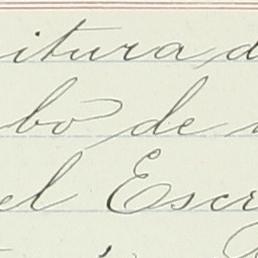 itura d
bo de
el Escr